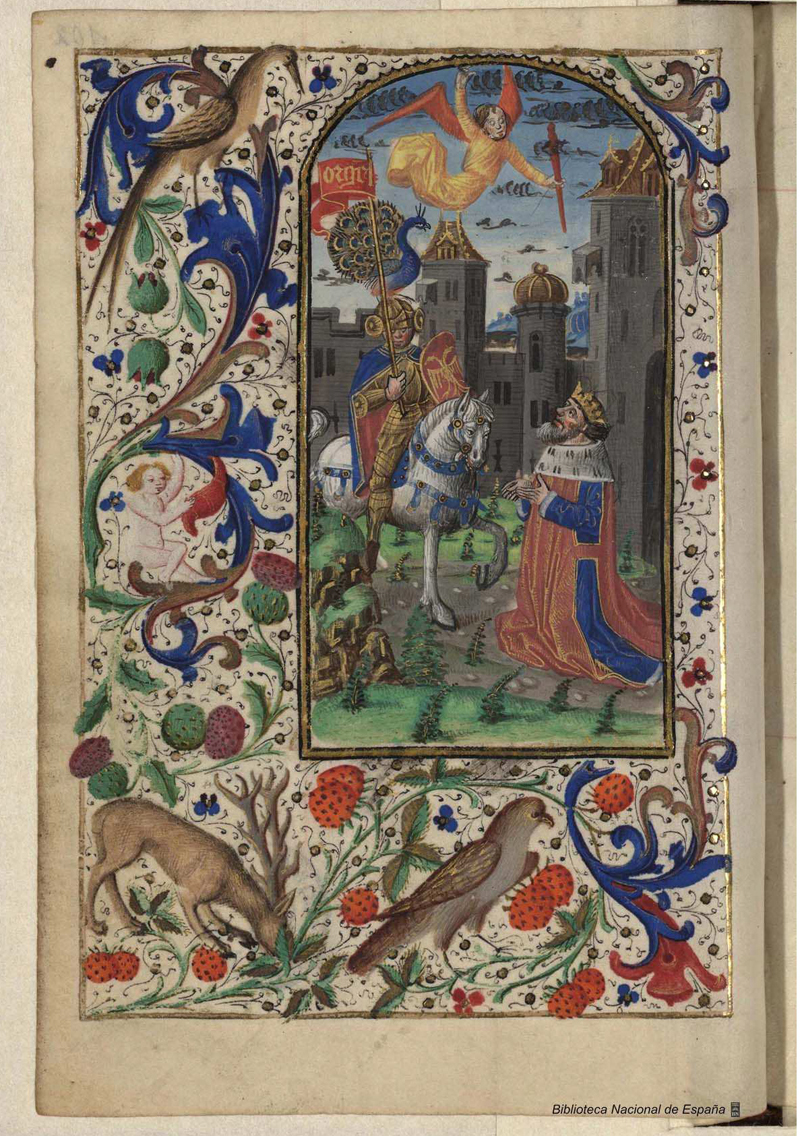 102
orgel
Biblioteca Nacional de España